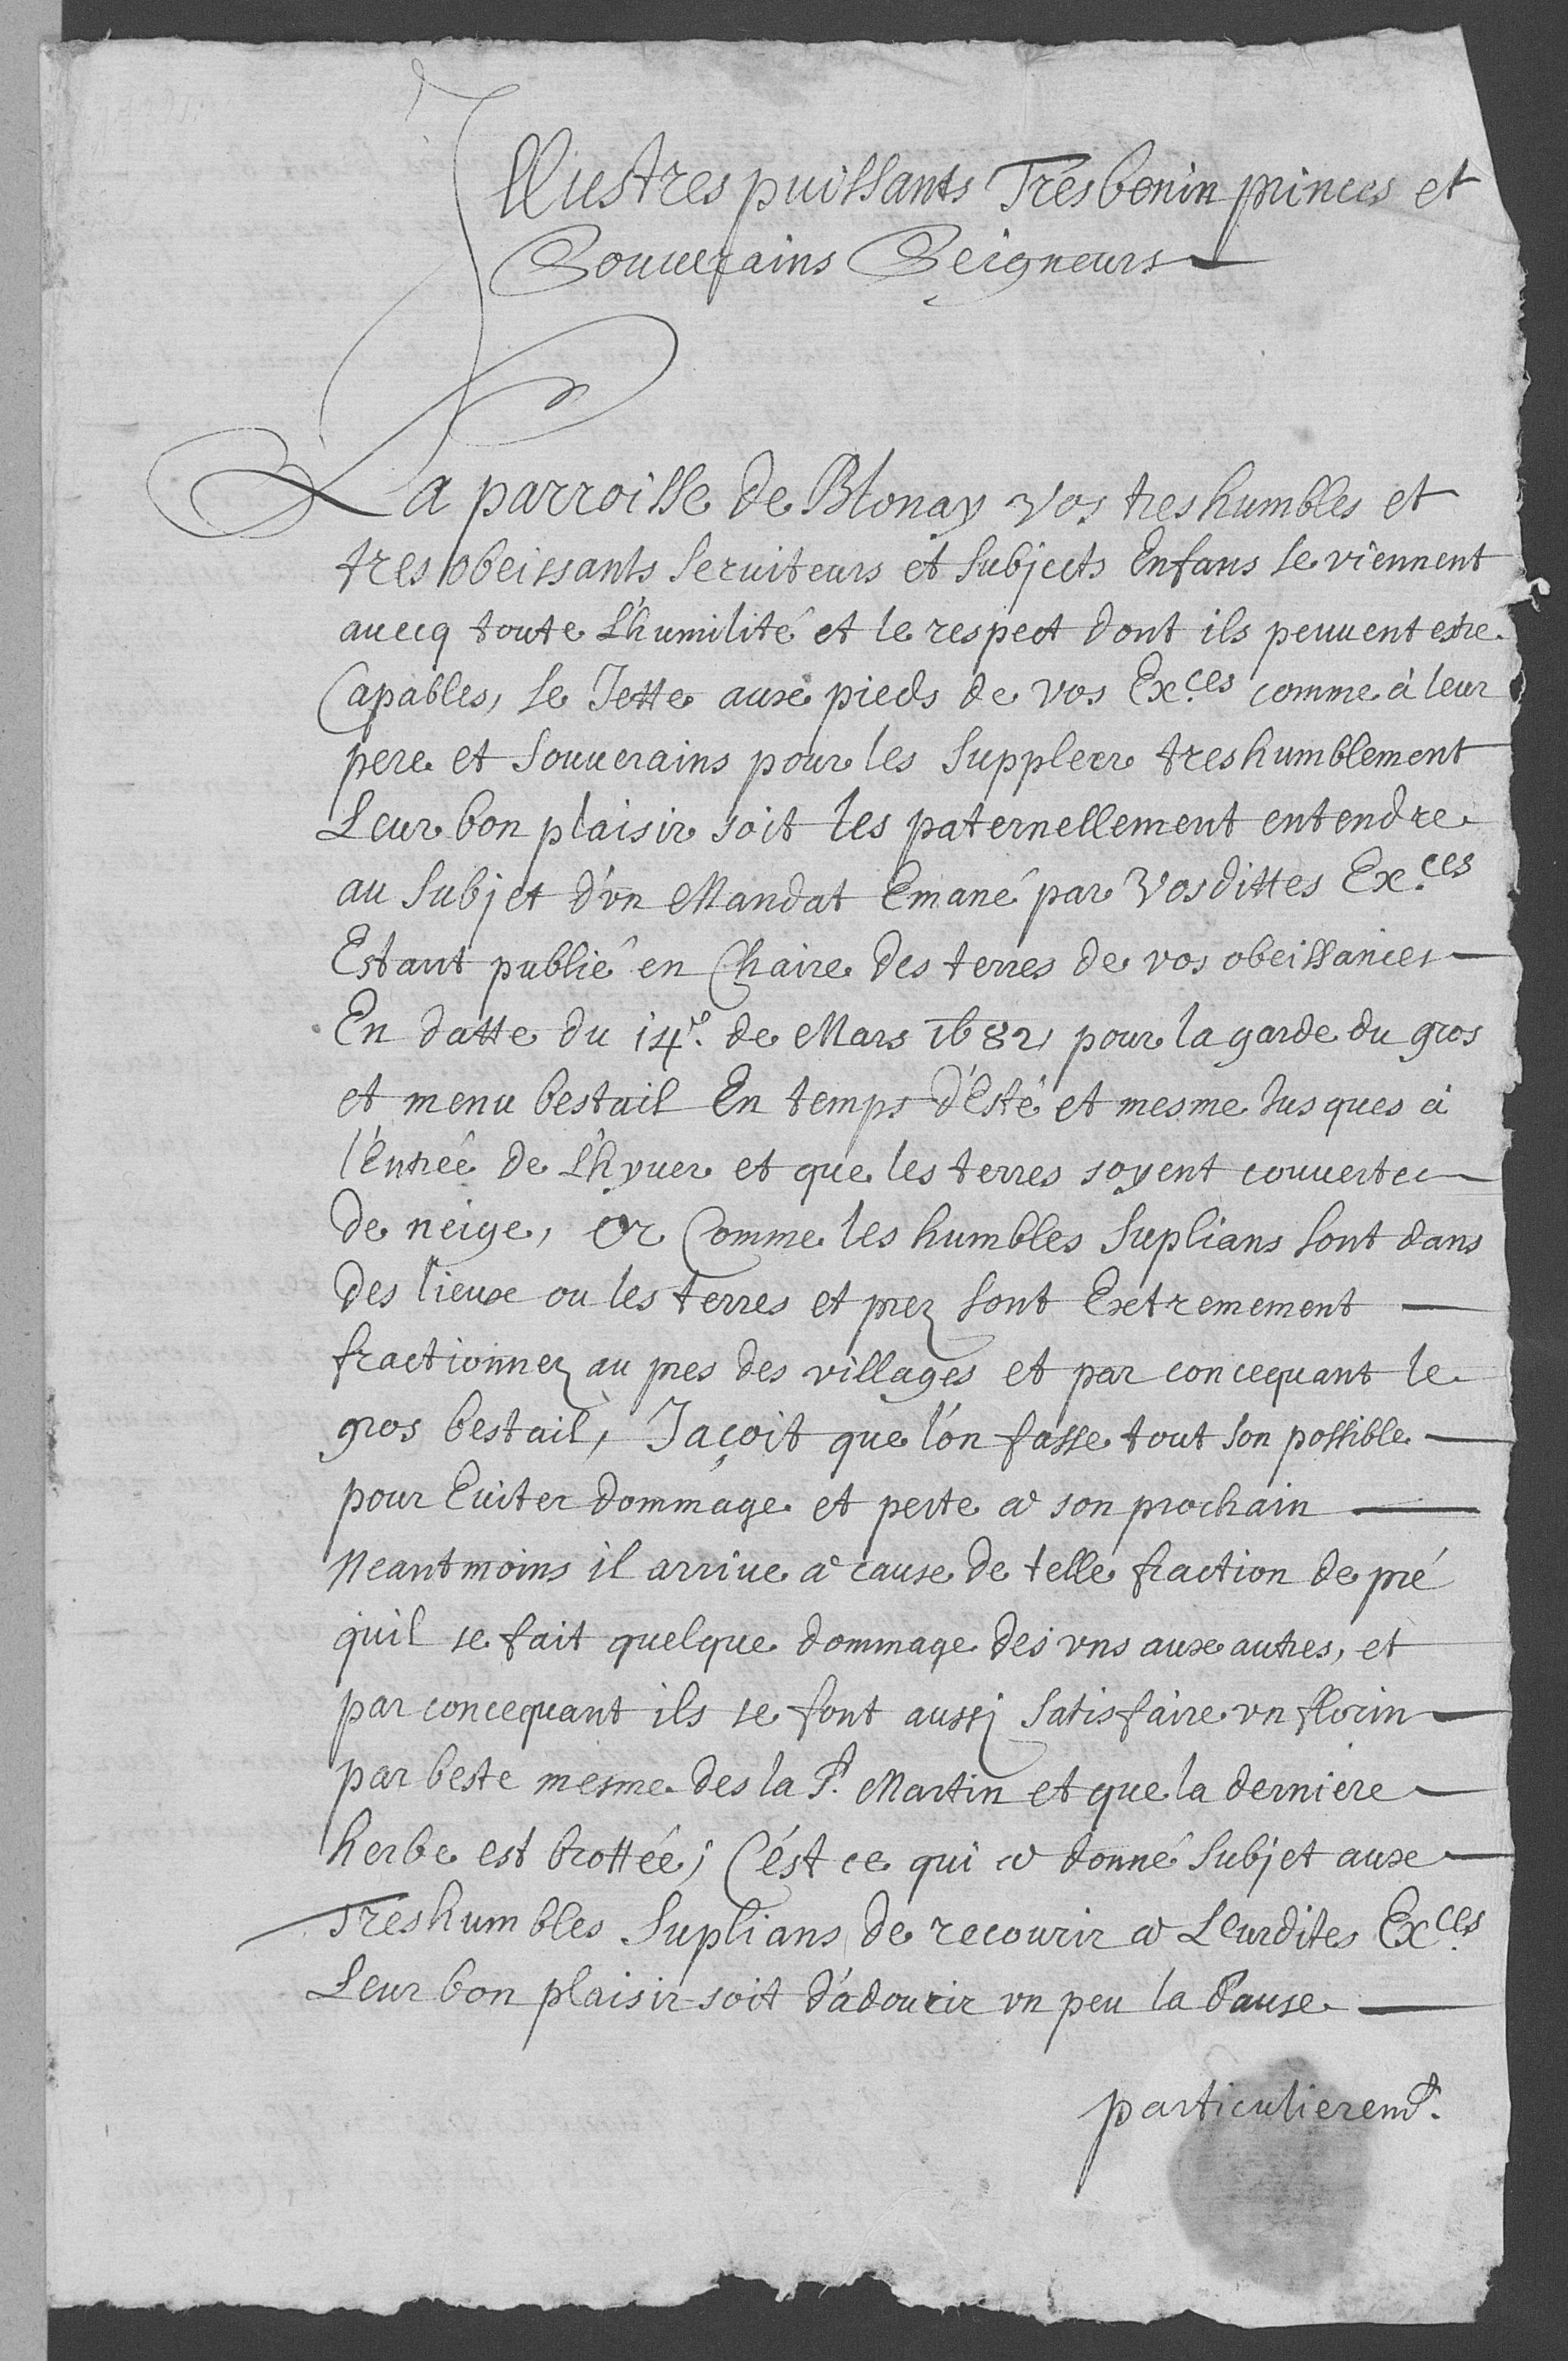 Illustres puissants Tresbenin princes et
Souuerains Seigneurs
La parroisse de Blonay vos treshumbles et
tres obeissants seruiteurs et subjects Enfans se viennent
auecq toute L'humilité et le respect dont ils peuuent estre
Capables, se Jette aux pieds de vos Ex.ces comme à leur
pere et souuerains pour les suppleer treshumblement
Leur bon plaisir soit les paternellement entendre
au subjet d'vn Mandat Emané par Vosdittes Ex.ces
Estant publié en Chaire des terres de vos obeissances
En datte du 14.e de Mars 1682, pour la garde du gros
et menu bestail En temps d'Esté et mesme Jusques à
l'Entrée de L'hyuer et que les terres soyent couuertes
de neige, Or Comme les humbles suplians sont dans
des lieux ou les terres et prez sont Extremement
fractionnez au pres des villages et par concequant le
gros bestail, Jaçoit que l'on fasse tout son possible
pour Euiter dommage et perte a son prochain
Neantmoins il arriue a cause de telle fraction de pré
quil se fait quelque dommage des vns aux autres, et
par concequant ils se font aussj satisfaire vn florin
par beste mesme des la St. Martin et que la derniere
herbe est brottée; C'ést ce qui a donné subjet aux
Treshumbles suplians de recourir a Leurdites Ex.ces
Leur bon plaisir soit d'adoucir vn peu la Cause
particulieremt.